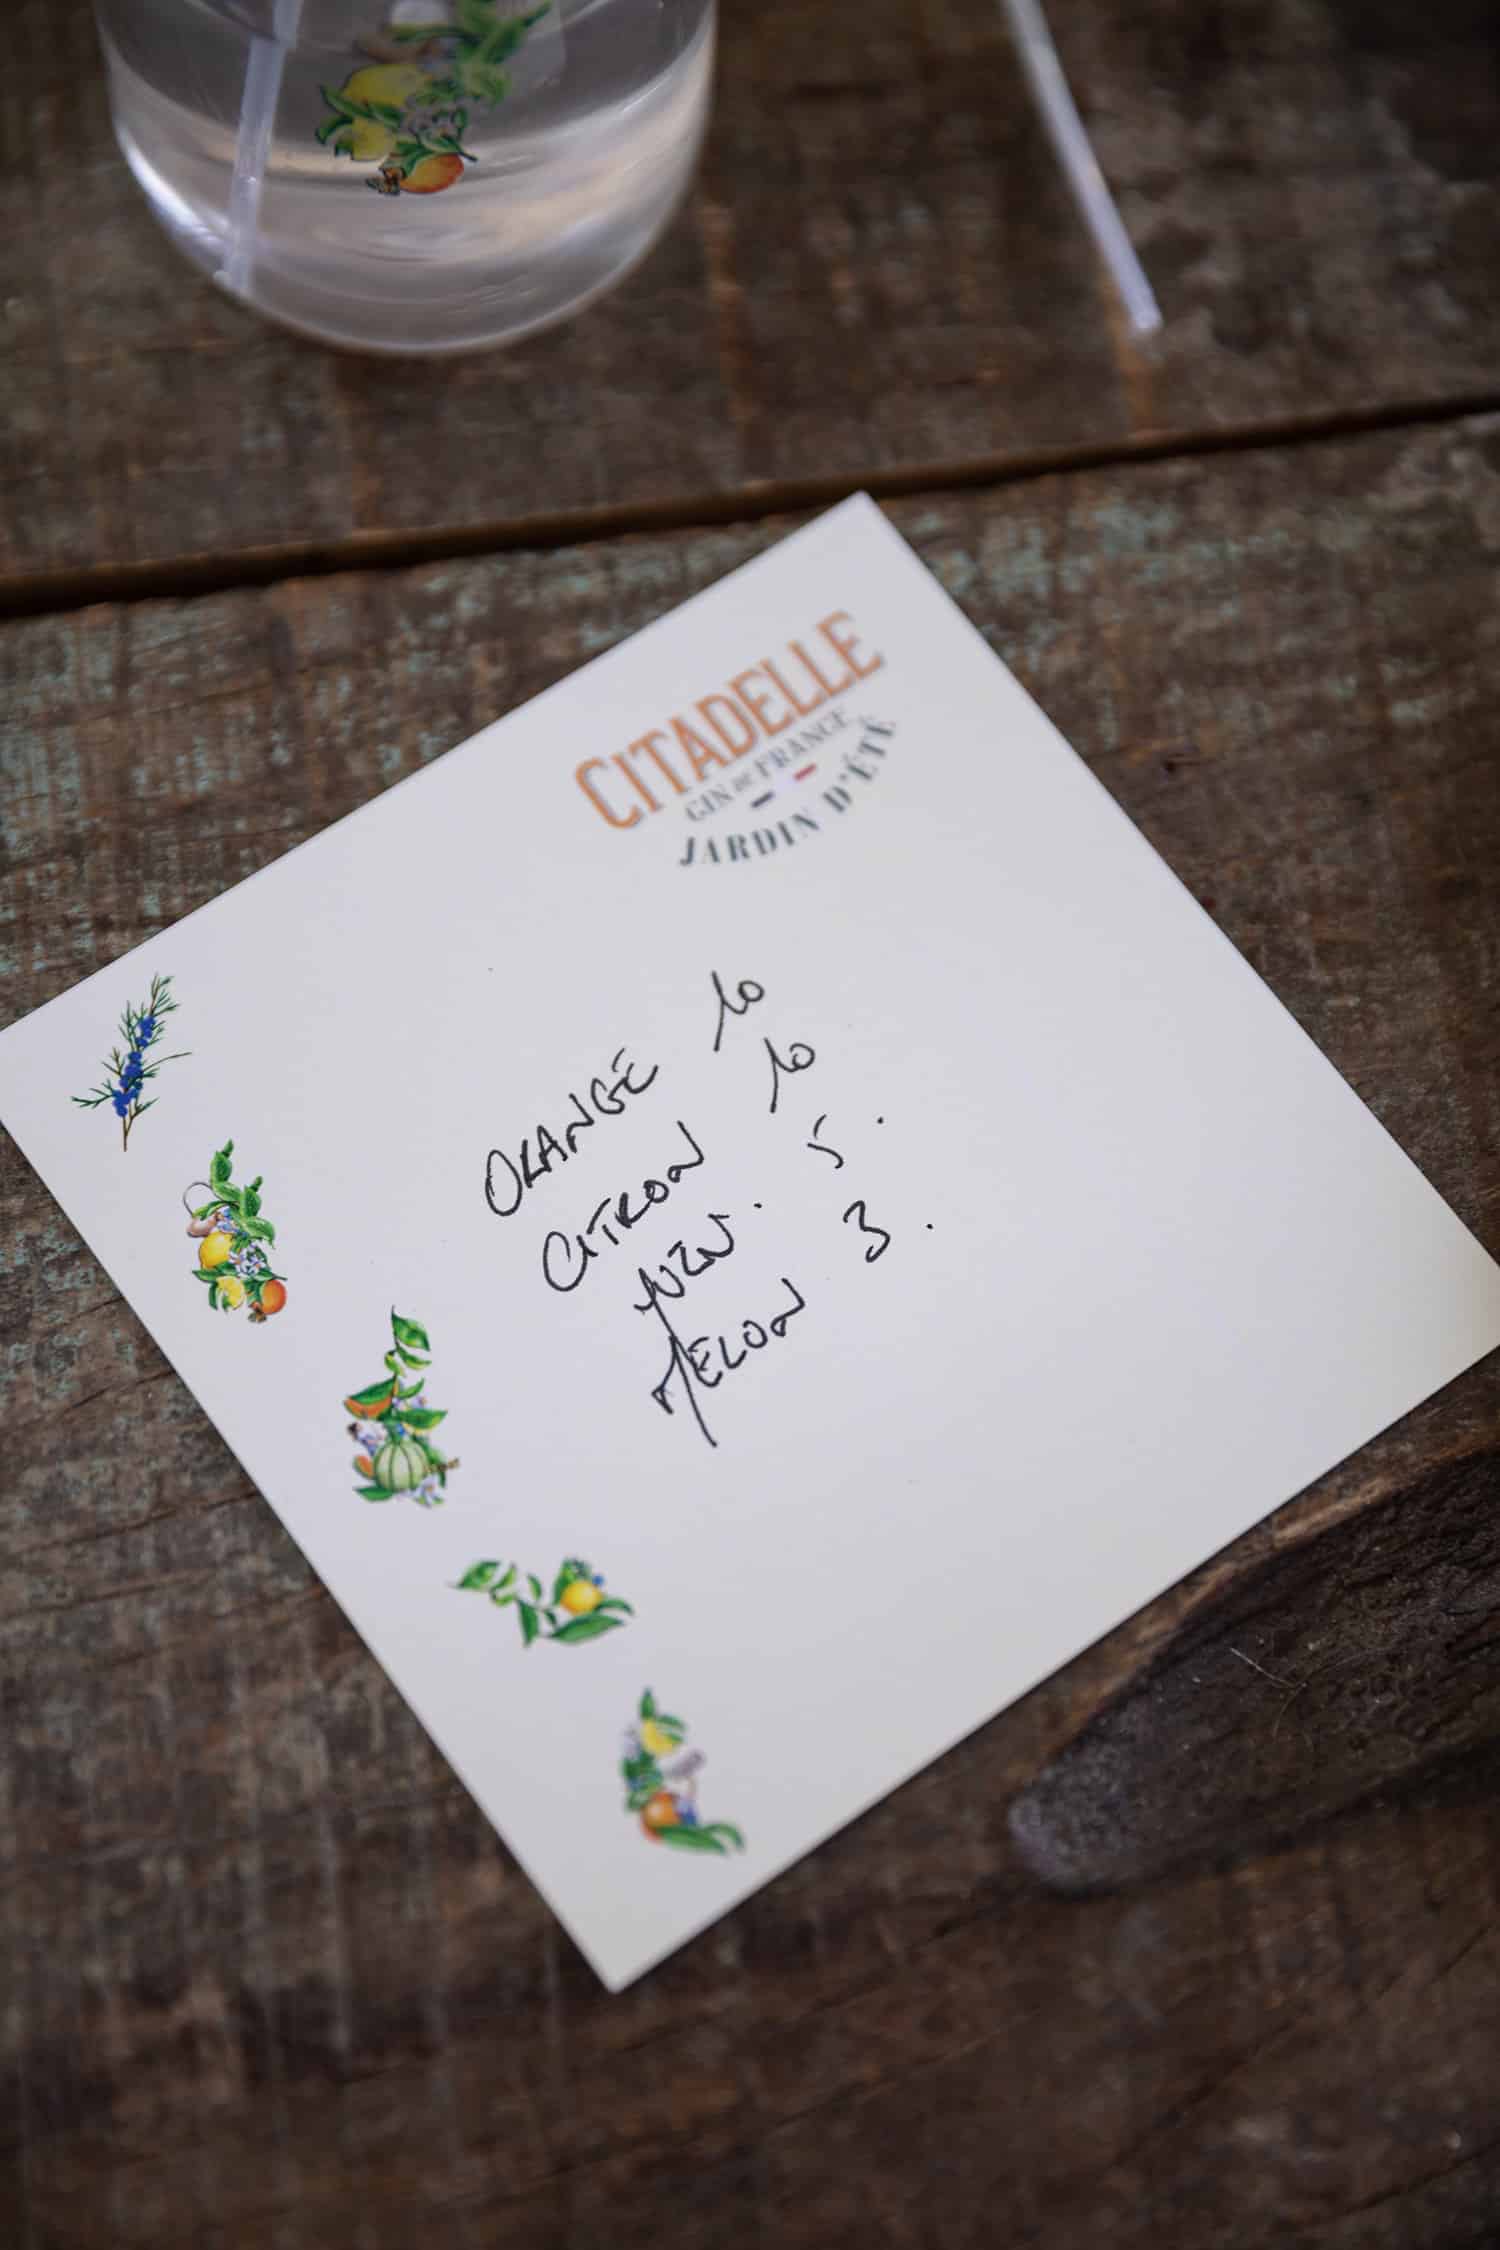 CITADELLE
GIN DE FRANCE
JARDIN D'ÉTÉ
ORANGE 10
CITRON 10
YUZU. 5.
MELON 3.